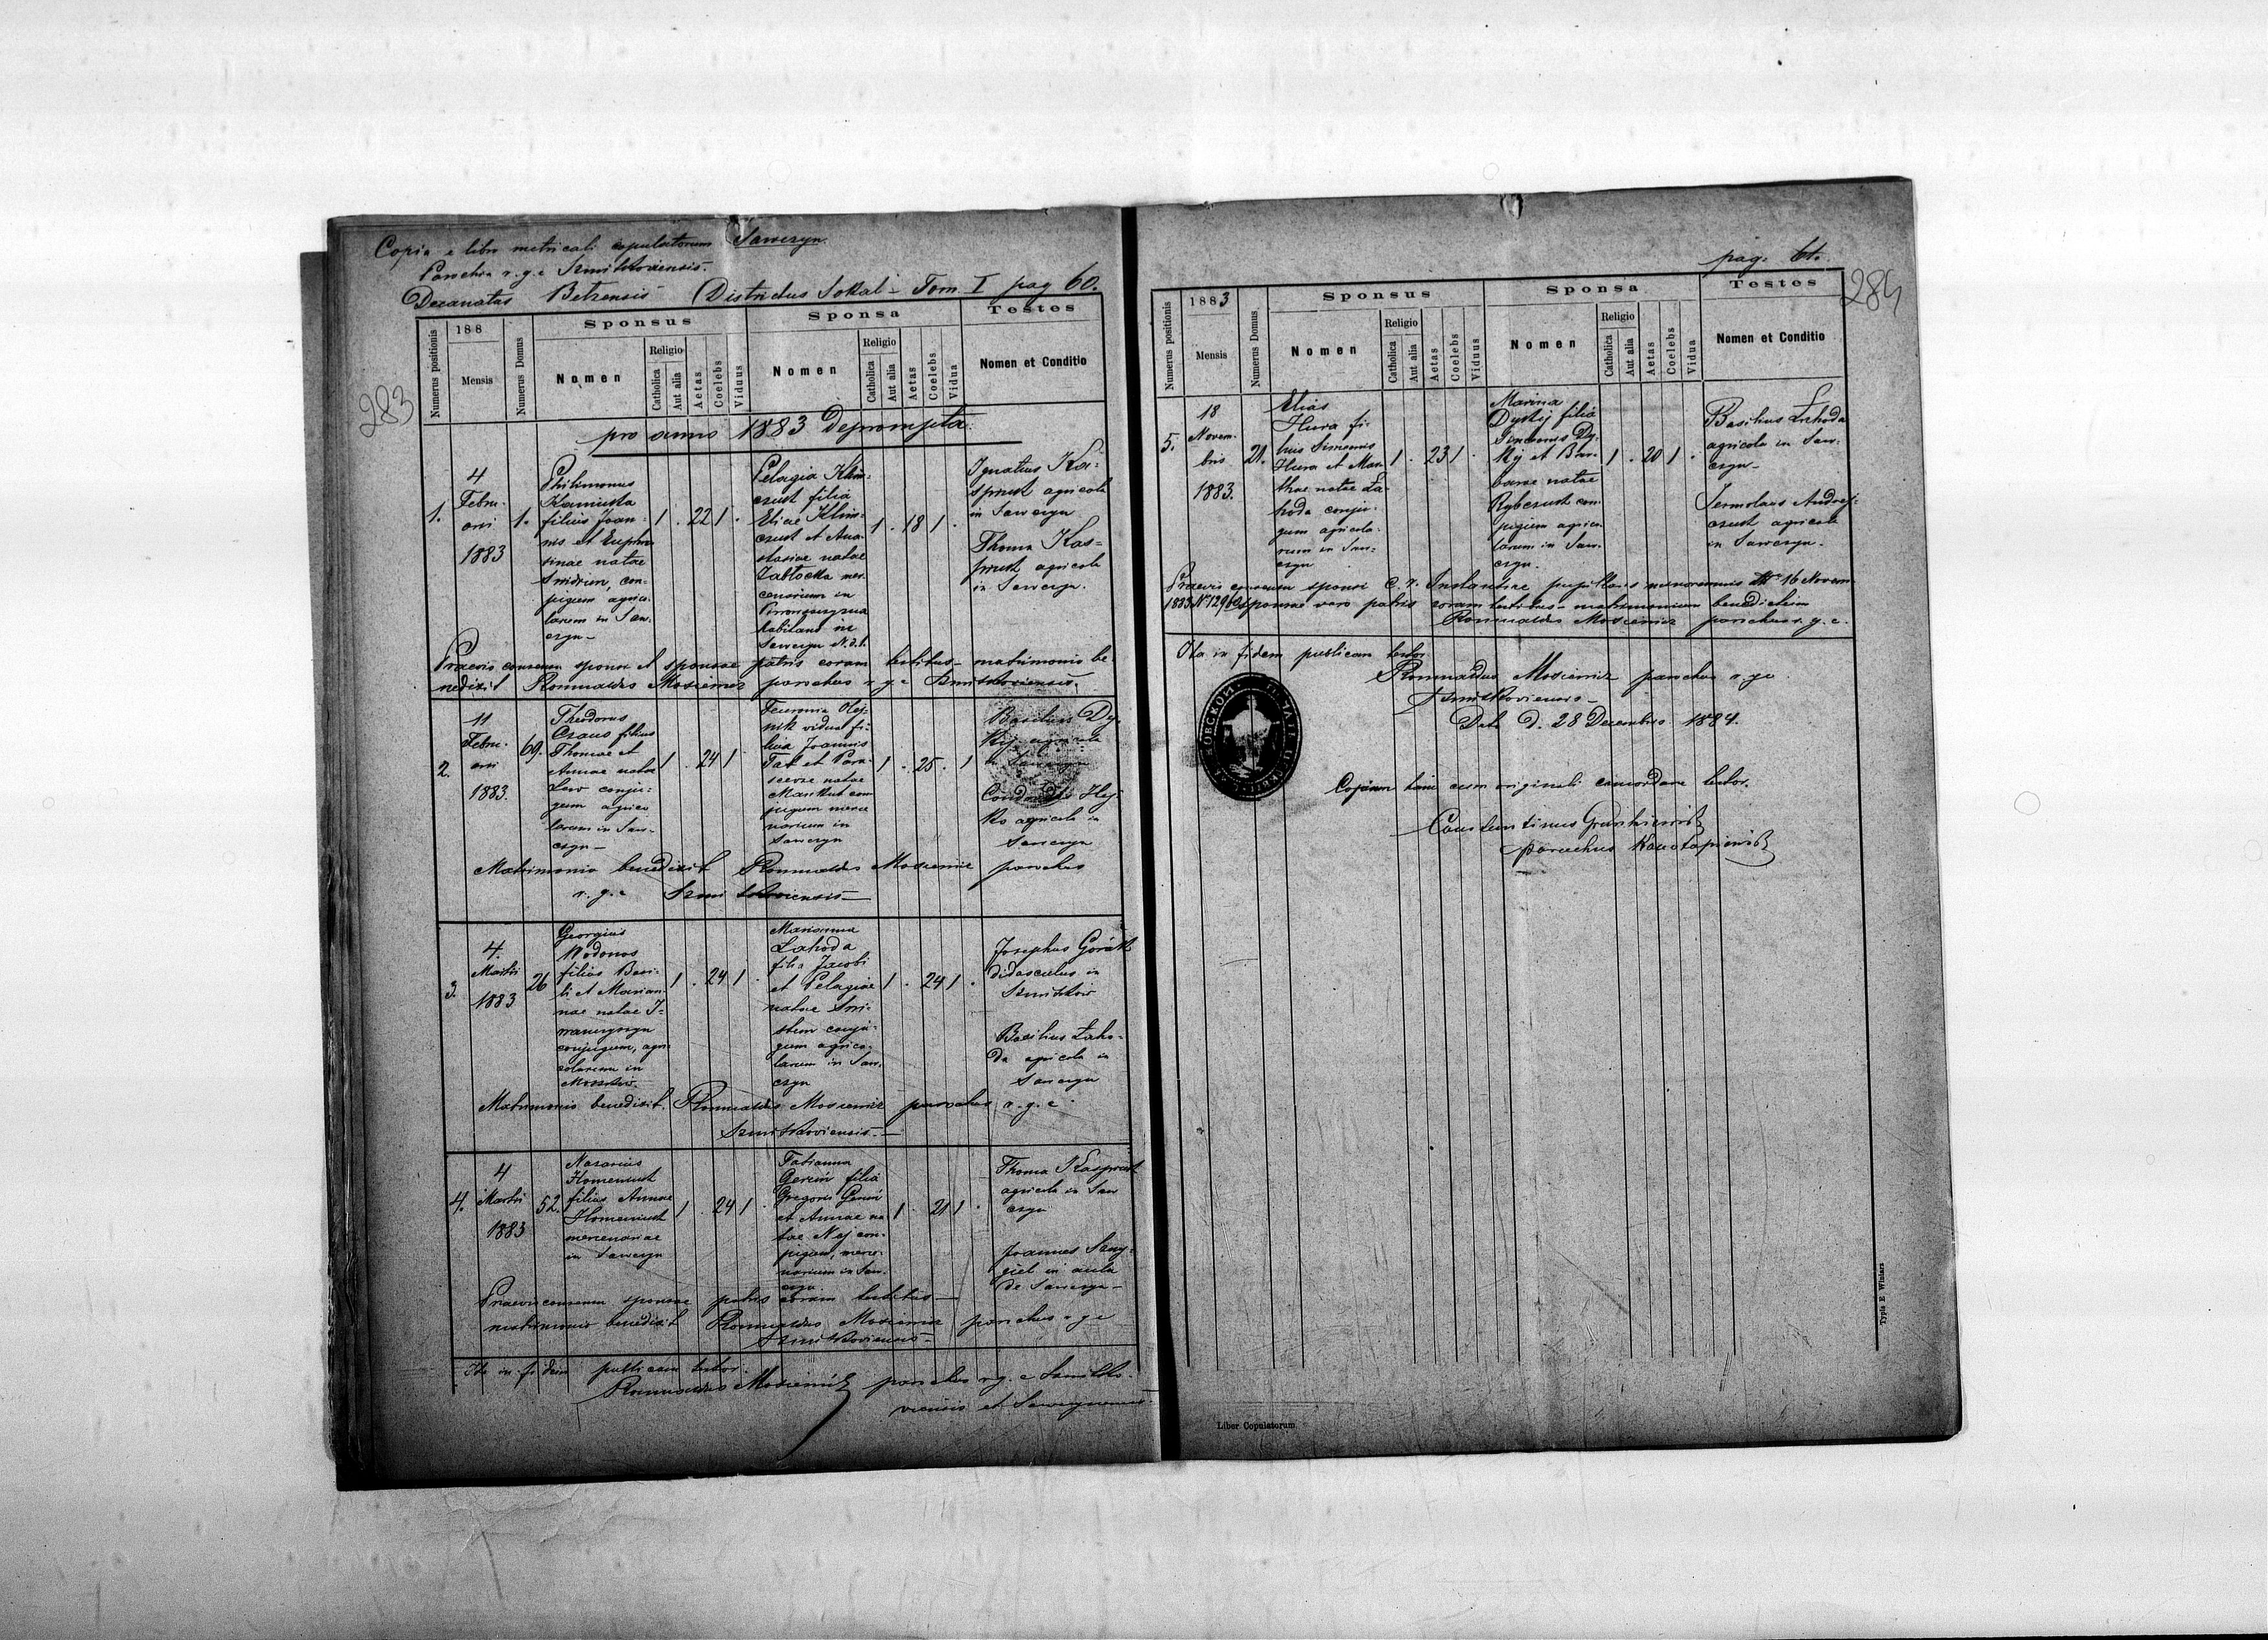 Copia e libro metricali copulatorum Sawczyn.
Parochia r. g. c. Szmitkoviensis.
Decanatus Belzensis Districtus Sokal - Tom I pag 60.
283
Numerus positionis
188
Mensis
Numerus Domus
Sponsus
Nomen
Religio
Catholica
Aut alia
Aetas
Coelebs
Viduus
Sponsa
Nomen
Religio
Catholica
Aut alia
Aetas
Coelebs
Vidua
Testes
Nomen et Conditio
pro anno 1883 Deprompta.
1.
4
Febru-
arii
1883
1.
Philimonus
filius Joan-
nis et Euphro
sinae natae
con-
jugum agrico-
larum in Saw-
czyn -
1 . 22 1 .
Pelagia Klim-
czuk filia
Eliae Klim-
czuk et Ana-
stasiae natae
Zabłocka mer-
cenariorum in
habitans in
Sawczyn N. 21.
1 . 18 1 .
Ignatius Ka-
spruk agricola
in Sawczyn
Thoma Kas-
pruk agricola
in Sawczyn.
Praevio consensu sponsi et sponsae patris coram testibus - matrimonio be-
nedixit Romualdus Mosiewicz parochus r. g. c. Szmitkoviensis.
2.
11
Febru-
arii
1883.
69.
Theodorus
Czaus filius
Thomae et
Annae natae
Lew conju-
gum agrico
larum in Saw-
czyn -
1 . 24 1
Fevronia Olej-
nik vidua fi-
lia Joannis
et Para-
scevae natae
con
jugum merce
nariorum in
Sawczyn
1 . 25 . 1
Basilius Dy-
kij agricola
in Sawczyn
Hej-
ko agricola in
Sawczyn
Matrimonio benedixit Romualdus Mosiewicz parochus
r. g. c. Szmitkoviensis -
3.
4.
Martii
1883
26
Georgius
Wodonos
filius Basi-
lii et Marian-
nae natae I-
wanczyszyn
conjugum, agri-
colarum in
1 . 24 1
Marianna
Łahoda
filia Jacobi
et Pelagiae
natae
conju-
gum agrico-
larum in Saw-
czyn
1 . 24 1 .
Josephus Goralk
didascalus in
Szmitkow
Basilius Łaho-
da agricola in
Sawczyn
Matrimonio benedixit Romualdus Mosiewicz parochus r. g. c.
Szmitkoviensis. -
4.
4
Martii
1883
52.
Nazarius
Homeniuk
filius Annae
Homeniuk
mercenariae
in Sawczyn
1 . 24 1 .
Tatianna
filia
Gregorii
et Annae na
tae Naj con-
jugum, merce-
nariorum in Saw-
czyn
1 . 21 1 .
Thoma Kaspruk
agricola in Saw
czyn
Joannes
in aula
de Sawczyn -
Praevio consensu sponsae patris coram testibus -
matrimonio benedixit Romualdus Mosiewicz parochus r g c
Szmitkoviensis -
Ita in fidem publicam testor.
Romualdus Mosiewicz parochus r. g. c. Szmitko-
viensis et Sawczynensis.
pag. 61.
284
Numerus positionis
1883
Mensis
Numerus Domus
Sponsus
Nomen
Religio
Catholica
Aut alia
Aetas
Coelebs
Viduus
Sponsa
Nomen
Religio
Catholica
Aut alia
Aetas
Coelebs
Vidua
Testes
Nomen et Conditio
5.
18
Novem-
bris
1883.
21.
Elias
Hura fi-
lius Simeonis
Hura et Mar-
thae natae Ła-
hoda conju-
gum agricola-
rum in Saw-
czyn
1 . 23 1 .
Marina
Dykij filia
Simeonis Dy-
kij et Bar-
barae natae
Rybczuk con-
jugum agrico-
larum in Saw-
czyn.
1 . 20 1 .
Basilius Łahoda
agricola in Saw-
czyn -
Jermolaus Andrej-
czuk agricola
in Sawczyn.
Praevio consensu sponsi C. r. Instantiae pupillaris 16 Novem.
1883 sponsae vero patris coram testibus - matrimonium benedictum
Romualdus Mosiewicz parochus r. g. c.
Ita in fidem publicam testor
Romualdus Mosiewicz parochus r. g c
Szmitkoviensis -
Datt. d. 28 Decembris 1884.
Copiam hanc cum originali concordare testor.
Constantinus
parochus
Typis E. Winiarz
Liber Copulatorum